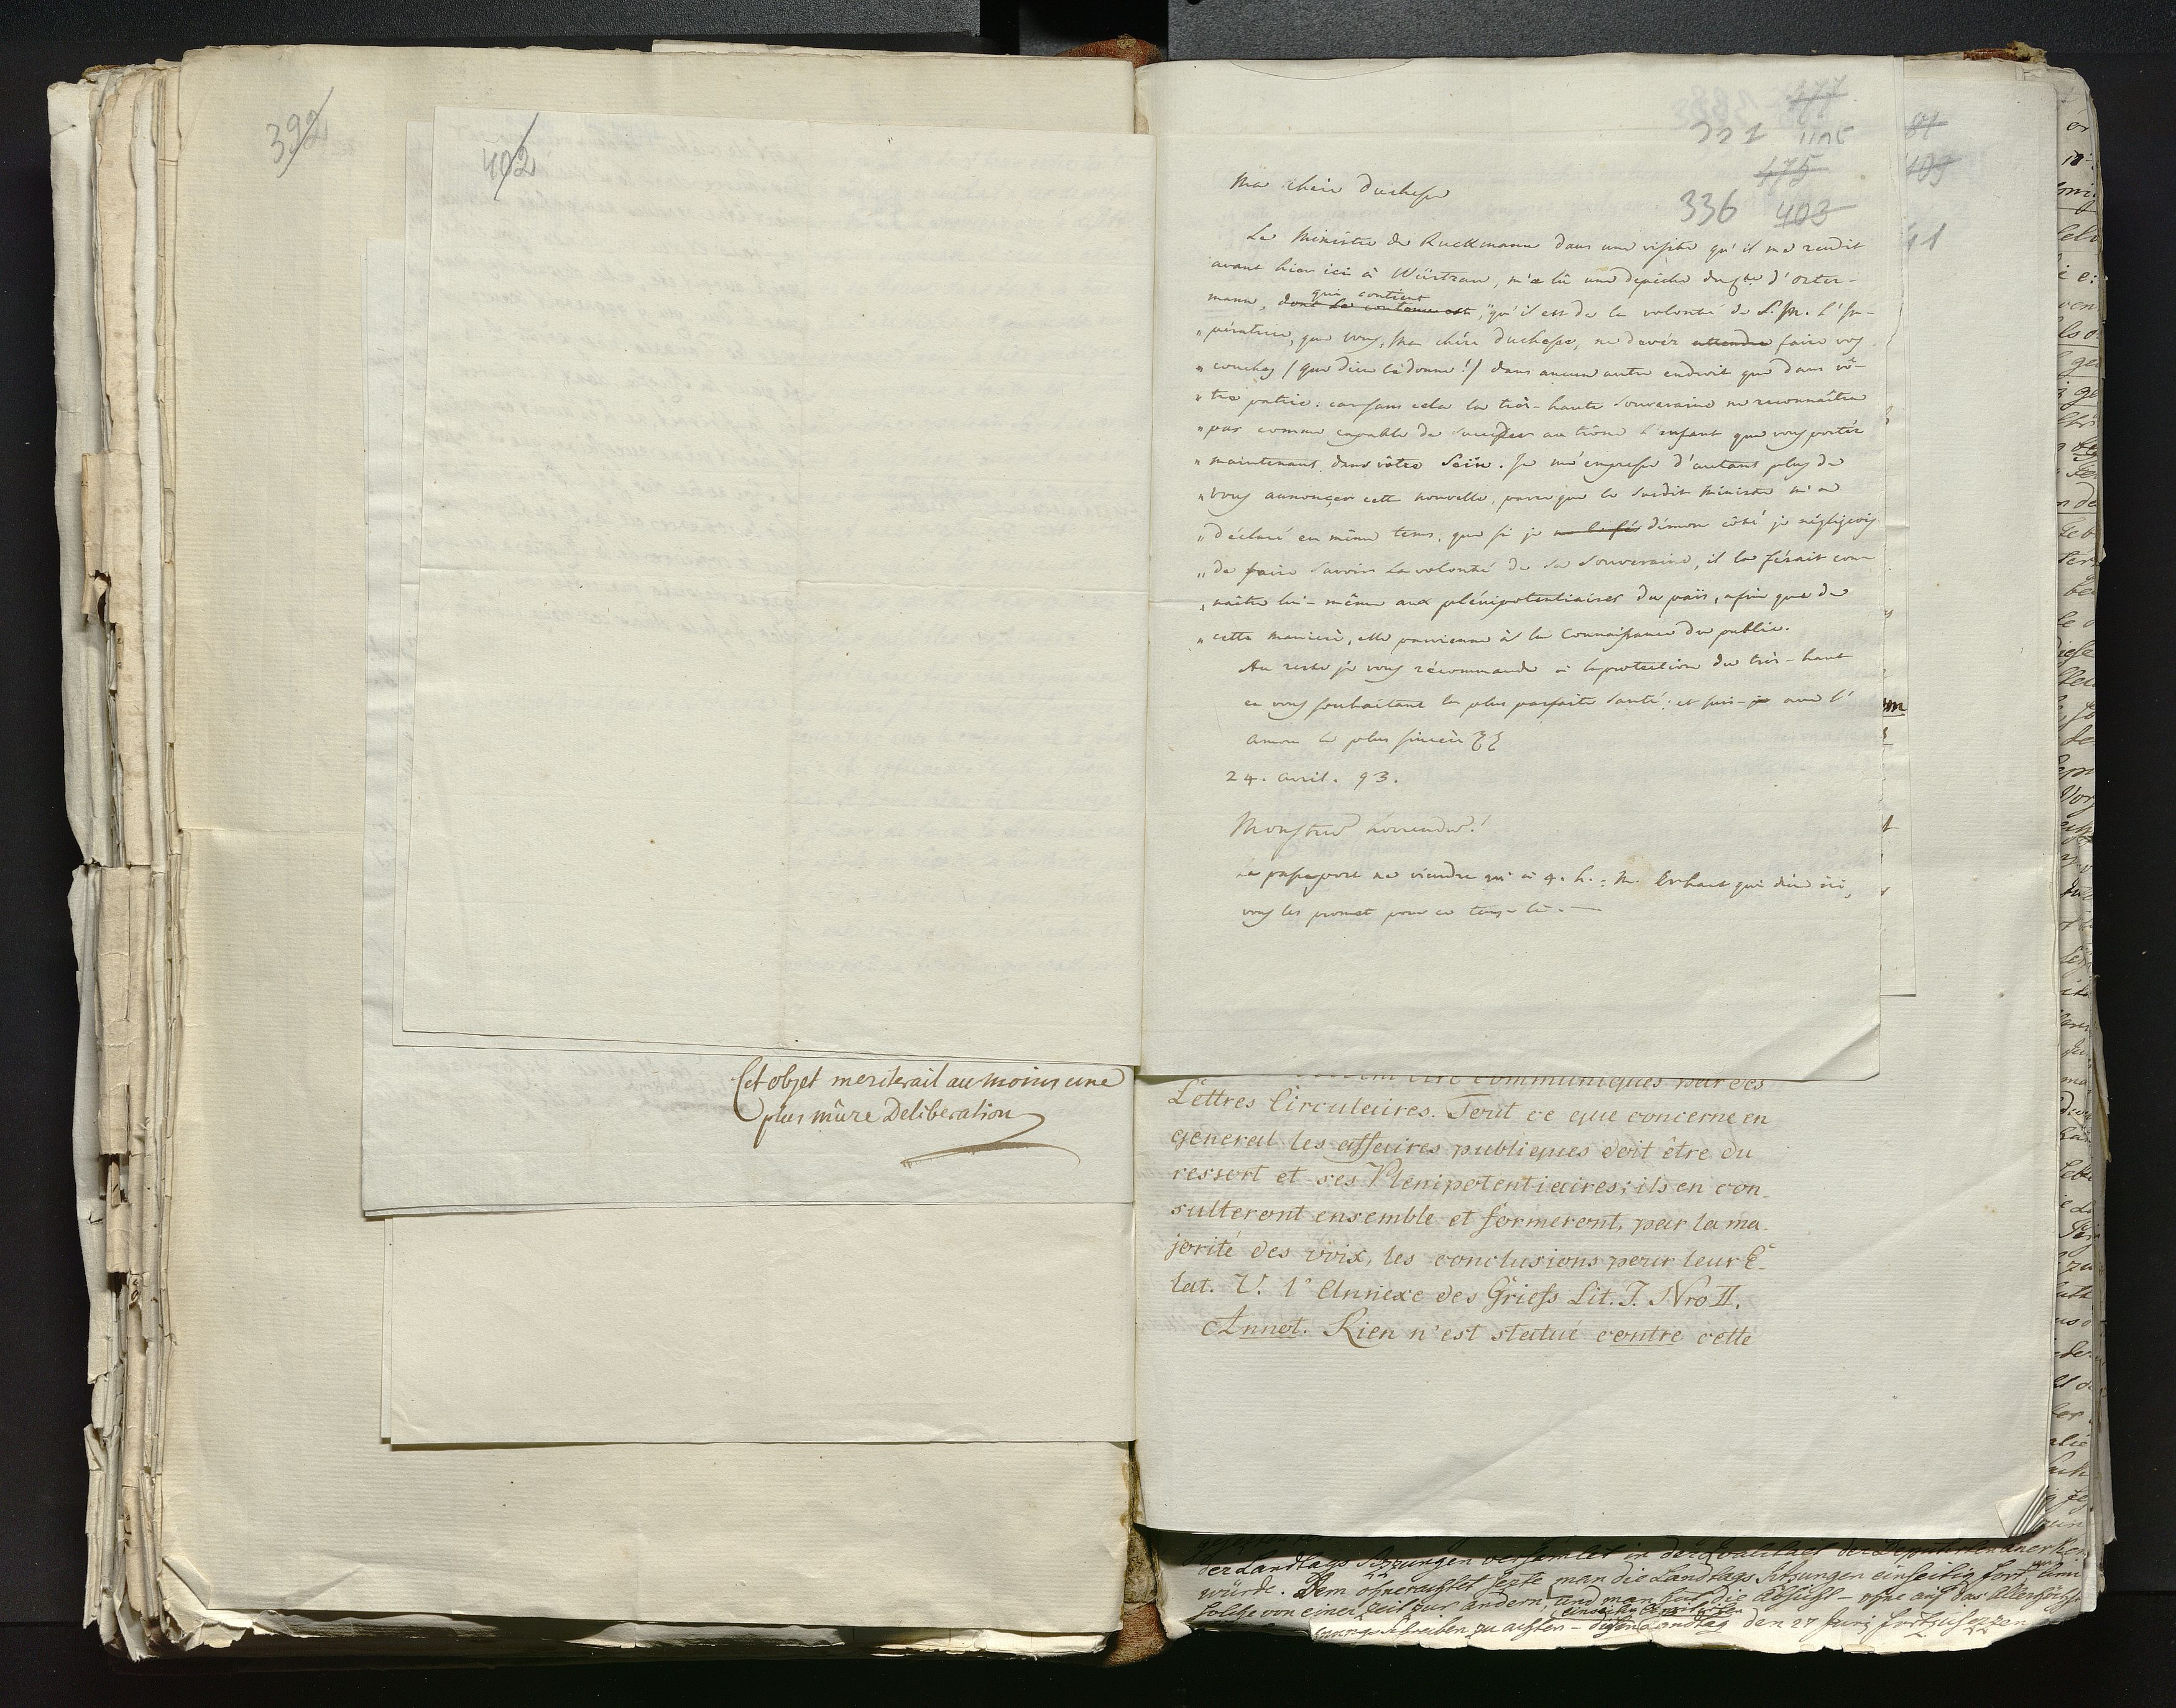 392
402
Cet objet meriterait au moins une
plus mûre Deliberation
477
321 1105
475
336 403
81
403
41
Ma chère duchesse
Le Ministre de Ruckmann dans une visite qu'il me rendit
avant hier ici à Würtzau, m'a lû une dépêche du Cte d'Oster-
mann, dont le contenu est qui contient "qu'il est de la volonté de S. M. l'Im-
"pératrice, que vous, Ma chère duchesse, ne devés attendre faire vos
"couches (que dieu le donne!) dans aucun autre endroit que dans vô-
"tre patrie: car sans cela la très-haute Souveraine ne reconnaîtra
"pas comme capable de succéder au trône l'enfant que vous portés
"maintenant dans vôtre Sein. Je m'empresse d'autant plus de
"vous annonçer cette nouvelle, parceque le susdit Ministre m'a
"déclaré en même tems, que si je ne le fis de mon côté je négligeois
"de faire savoir la volonté de sa Souveraine, il la férait con
"naître lui-même aux plénipotentiaires du païs, afin que de
"cette manière, elle parvienne à la Connaissance du public.
Au reste je vous récommande à la protection du très-haut
en vous souhaitant la plus parfaite santé: et suis-je avec l'
amour le plus sincère
24. avril. 93.
Monstrum horrendum!
Le passeport ne viendra qu'à 4. h.: M. Erhart qui dine ici,
vous les promet pour ce tems-là. —
communiqués par des
Lettres Circulaires. Tout ce que concerne en
general les affaires publiques doit être du
ressort et ses Plenipotentiaires; ils en con-
sulteront ensemble et formeront, par la ma-
jorité des voix, les conclusions pour leur E-
tat. V. l' Annexe des Griefs Lit. J. Nro II.
Annot. Rien n'est statué contre cette
der Landtags Sitzungen versamlet in der Qualitaet der Deputirten anerken
würde. Dem ohnerachtet sezte man die Landtags Sitzungen einseitig fort,
solche von einer Zeit zur andern, und man hat die Absicht – ohne auf das Allerhöchste
Schreiben zu achten – diesen Landtag den 27 Juny fortzusezzen